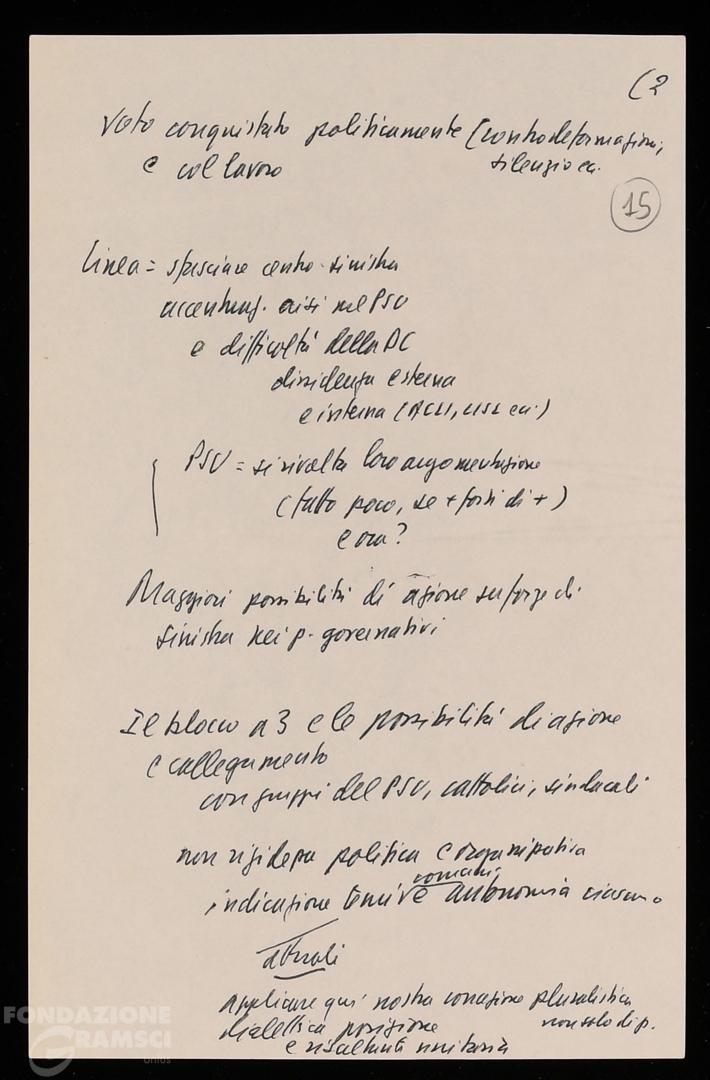 (2
Voto conquistato politicamente (contro deformazioni,
e col lavoro silenzio ecc.
15
Linea = spesciare centro-sinistra
accentuaz. crisi nel PSU
e difficoltà della DC
dissidenza esterna
e interna (ACLI, CISL ecc.)
PSU = si rivolta loro argomentazione
(fatto poco, se + forti di +)
e ora?
Maggiori possibilità di azione su forze di
sinistra nei p. governativi
Il blocco a 3 e le possibilità di azione
e collegamento
con gruppi del PSU, cattolici, sindacali
non rigidezza politica e organizzativa
comuni
indicazione temi v e autonomia ciascuno
attuali
Applicare qui nostra concezione pluralistica
dialettica posizione non solo di p.
e risultanti unitaria
FONDAZIONE
GRAMSCI
onlus